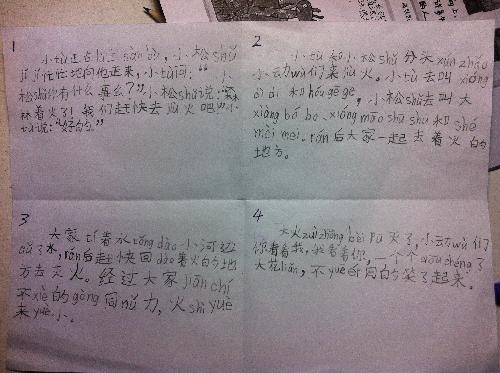 1
小tù正在
急忙忙地向他走来,小tù问:"小
松shǔ你有什么事么?"小松shǔ说:"森
林着火了!我们赶快去miè火吧!"小
tù说:"好的。"
2
小tù和小松shǔ分头xún zhǎo
小动wù们来miè火。小tù去叫
dì di和hóu gē ge,小松shǔ去叫大
xiàng bó bo、xióng māo shū shu和shé
mèi mei。rán后大家一起去着火的
地方。
3
大家tí着水tǒng dào小河边
水,rán后赶快回dào着火的地
方去灭火。经过大家jiān chí
不xiè的gòng同nǔ力,火shì yuè
来yuè小。
4
大火zuì zhōng bèi pū灭了,小动wù们
你看看我,我看看你,一个个dōu chéng了
大花liǎn,不yuē所同的笑了起来。